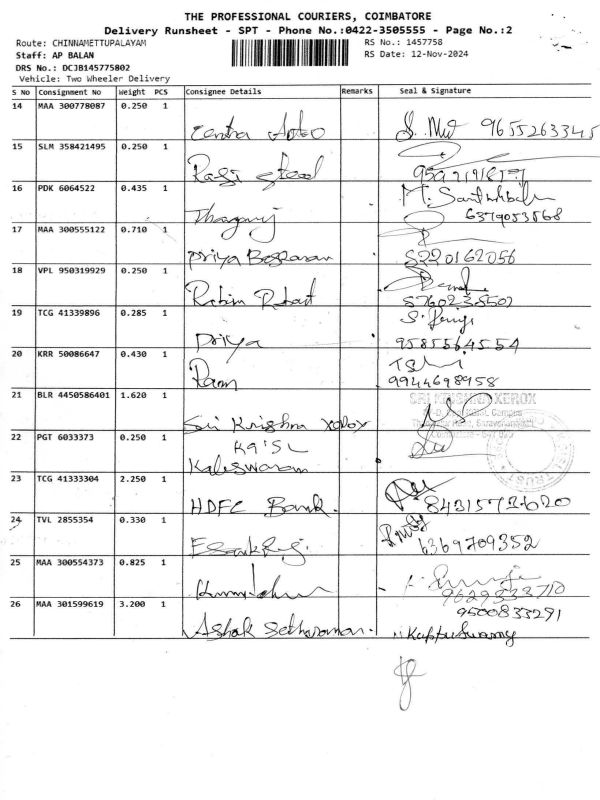 THE PROFESSIONAL COURIERS, COIMBATORE
Delivery Runsheet - SPT - Phone No.:0422-3505555 - Page No.:2
Route: CHINNAMETTUPALAYAM RS No.: 1457758
Staff: AP BALAN RS Date: 12-Nov-2024
DRS No.: DCJB145775802
Vehicle: Two Wheeler Delivery
S No Consignment No Weight PCS Consignee Details Remarks Seal & Signature
14 MAA 300778087 0.250 1
9655263345
15 SLM 358421495 0.250 1
16 PDK 6064522 0.435 1
6379053568
17 MAA 300555122 0.710 1
Priya
18 VPL 950319929 0.250 1
Robin Robert
19 TCG 41339896 0.285 1
Priya 9585564554
20 KRR 50086647 0.430 1
Ram 9944698958
21 BLR 4450586401 1.620 1
SRI KRISHNA XEROX
Sri Krishna
22 PGT 6033373 0.250 1
Kaleswaram
23 TCG 41333304 2.250 1
HDFC Bank.
24 TVL 2855354 0.330 1
6369709352
25 MAA 300554373 0.825 1
9629333710
26 MAA 301599619 3.200 1
9500833291
Ashok Setharaman. Kuppuswamy